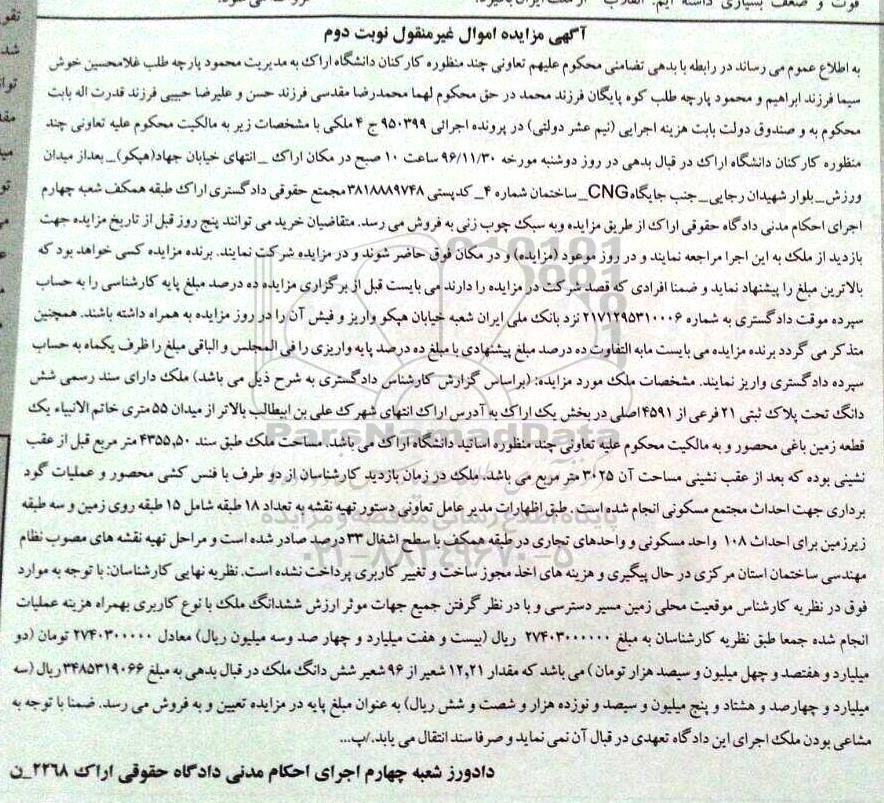 فوت و ضعف بسیاری داشته ایم. انقلاب
آگهی مزایده اموال غیرمنقول نوبت دوم
به اطلاع عموم می رساند در رابطه با بدهی تضامنی محکوم علیهم تعاونی چند منظوره کارکنان دانشگاه اراک به مدیریت محمود پارچه طلب غلامحسین خوش
سیما فرزند ابراهیم و محمود پارچه طلب کوه پایگان فرزند محمد در حق محکوم لهما محمدرضا مقدسی فرزند حسن و علیرضا حبیبی فرزند قدرت اله بابت
محکوم به و صندوق دولت بابت هزینه اجرایی (نیم عشر دولتی) در پرونده اجرائی ۹۵۰۳۹۹ ج ۴ ملکی با مشخصات زیر به مالکیت محکوم علیه تعاونی چند
منظوره کارکنان دانشگاه اراک در قبال بدهی در روز دوشنبه مورخه ۹۶/۱۱/۳۰ ساعت ۱۰ صبح در مکان اراک _ انتهای خیابان جهاد(هپکو)_ بعداز میدان
ورزش_بلوار شهیدان رجایی_ جنب جایگاه CNG_ ساختمان شماره ۴_ کدپستی ۳۸۱۸۸۸۹۷۴۸ مجتمع حقوقی دادگستری اراک طبقه همکف شعبه چهارم
اجرای احکام مدنی دادگاه حقوقی اراک از طریق مزایده وبه سبک چوب زنی به فروش می رسد. متقاضیان خرید می توانند پنج روز قبل از تاریخ مزایده جهت
بازدید از ملک به این اجرا مراجعه نمایند و در روز موعود (مزایده) و در مکان فوق حاضر شوند و در مزایده شرکت نمایند. برنده مزایده کسی خواهد بود که
بالاترین مبلغ را پیشنهاد نماید و ضمنا افرادی که قصد شرکت در مزایده را دارند می بایست قبل از برگزاری مزایده ده درصد مبلغ پایه کارشناسی را به حساب
سپرده موقت دادگستری به شماره ۲۱۷۱۲۹۵۳۱۰۰۰۶ نزد بانک ملی ایران شعبه خیابان هپکو واریز و فیش آن را در روز مزایده به همراه داشته باشند. همچنین
متذکر می گردد برنده مزایده می بایست مابه التفاوت ده درصد مبلغ پیشنهادی با مبلغ ده درصد پایه واریزی را فی المجلس و الباقی مبلغ را ظرف یکماه به حساب
سپرده دادگستری واریز نمایند. مشخصات ملک مورد مزایده: (براساس گزارش کارشناس دادگستری به شرح ذیل می باشد) ملک دارای سند رسمی شش
دانگ تحت پلاک ثبتی ۲۱ فرعی از ۴۵۹۱ اصلی در بخش یک اراک به آدرس اراک انتهای شهرک علی بن ابیطالب بالاتر از میدان ۵۵ متری خاتم الانبیاء یک
قطعه زمین باغی محصور و به مالکیت محکوم علیه تعاونی چند منظوره اساتید دانشگاه اراک می باشد. مساحت ملک طبق سند ۴۳۵۵,۵۰ متر مربع قبل از عقب
نشینی بوده که بعد از عقب نشینی مساحت آن ۳۰۲۵ متر مربع می باشد. ملک در زمان بازدید کارشناسان از دو طرف با فنس کشی محصور و عملیات گود
برداری جهت احداث مجتمع مسکونی انجام شده است . طبق اظهارات مدیر عامل تعاونی دستور تهیه نقشه به تعداد ۱۸ طبقه شامل ۱۵ طبقه روی زمین و سه طبقه
زیرزمین برای احداث ۱۰۸ واحد مسکونی و واحدهای تجاری در طبقه همکف با سطح اشغال ۳۳ درصد صادر شده است و مراحل تهیه نقشه های مصوب نظام
مهندسی ساختمان استان مرکزی در حال پیگیری و هزینه های اخذ مجوز ساخت و تغییر کاربری پرداخت نشده است. نظریه نهایی کارشناسان: با توجه به موارد
فوق در نظریه کارشناس موقعیت محلی زمین مسیر دسترسی و با در نظر گرفتن جمیع جهات موثر ارزش ششدانگ ملک با نوع کاربری بهمراه هزینه عملیات
انجام شده جمعا طبق نظریه کارشناسان به مبلغ ۲۷۴۰۳۰۰۰۰۰۰ ریال (بیست و هفت میلیارد و چهار صد وسه میلیون ریال) معادل ۲۷۴۰۳۰۰۰۰۰ تومان (دو
میلیارد و هفتصد و چهل میلیون و سیصد هزار تومان ) می باشد که مقدار ۱۲,۲۱ شعیر از ۹۶ شعیر شش دانگ ملک در قبال بدهی به مبلغ ۳۴۸۵۳۱۹۰۶۶ ریال (سه
میلیارد و چهارصد و هشتاد و پنج میلیون و سیصد و نوزده هزار و شصت و شش ریال) به عنوان مبلغ پایه در مزایده تعیین و به فروش می رسد. ضمنا با توجه به
مشاعی بودن ملک اجرای این دادگاه تعهدی در قبال آن نمی نماید و صرفا سند انتقال می یابد./پ...
دادورز شعبه چهارم اجرای احکام مدنی دادگاه حقوقی اراک ۲۲۶۸_ن
ParsNamadData
پایگاه اطلاع رسانی مناقصه و مزایده
۰۲۱-۸۸۳۴۹۶۷۰-۵